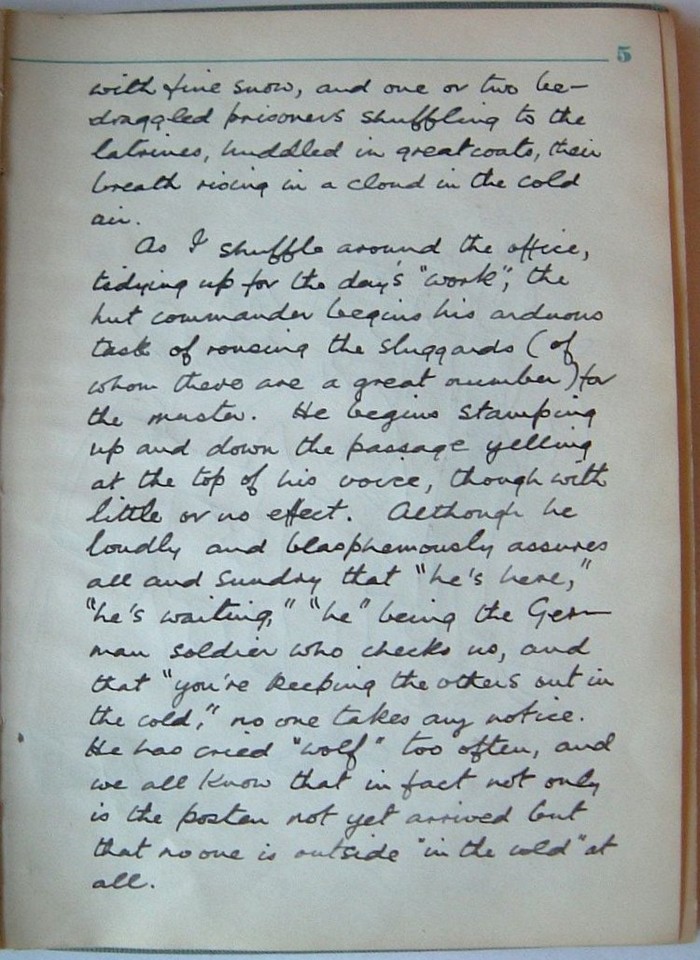 5
with fine snow, and one or two be-
draggled prisoners shuffling to the
latrines, huddled in greatcoats, their
breath rising in a cloud in the cold
air.
As I shuffle around the office,
tidying up for the day's "work", the
hut commander begins his arduous
task of rousing the sluggards (of
whom there are a great number) for
the muster. He begins stamping
up and down the passage yelling
at the top of his voice, though with
little or no effect. Although he
loudly and blasphemously assures
all and sundry that "he's here,"
"he's waiting," "he" being the Ger-
man soldier who checks us, and
that "you're keeping the others out in
the cold," no one takes any notice.
He has cried "wolf" too often, and
we all know that in fact not only
is the posten not yet arrived but
that no one is outside "in the cold" at
all.